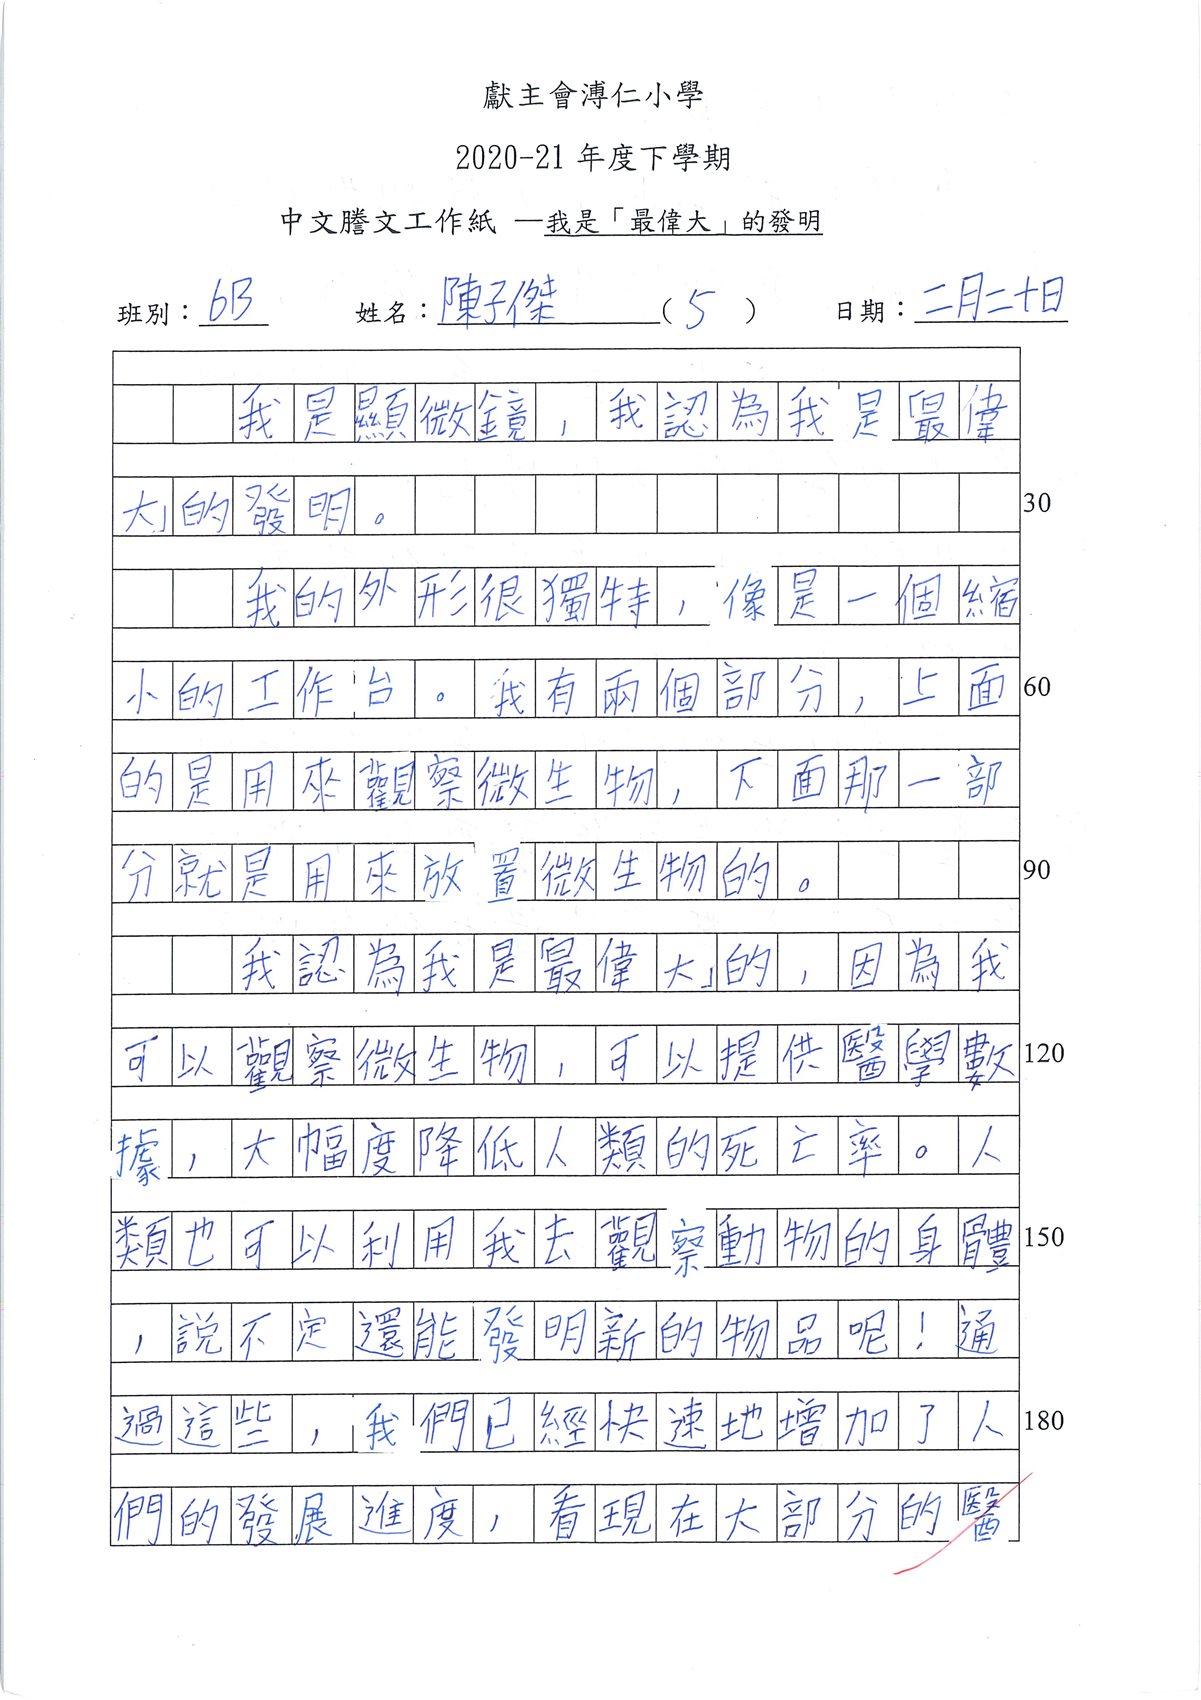 獻主會溥仁小學
2020-21 年度下學期
中文謄文工作紙 —我是「最偉大」的發明
班別：6B 姓名：陳子傑（5）日期：二月二十日
我是顯微鏡，我認為我是「最偉
大」的發明。 30
我的外形很獨特，像是一個縮
小的工作台。我有兩個部分，上面 60
的是用來觀察微生物，下面那一部
分就是用來放置微生物的。 90
我認為我是「最偉大」的，因為我
可以觀察微生物，可以提供醫學數 120
據，大幅度降低人類的死亡率。人
類也可以利用我去觀察動物的身體 150
，說不定還能發明新的物品呢！通
過這些，我們已經快速地增加了人 180
們的發展進度，看現在大部分的醫